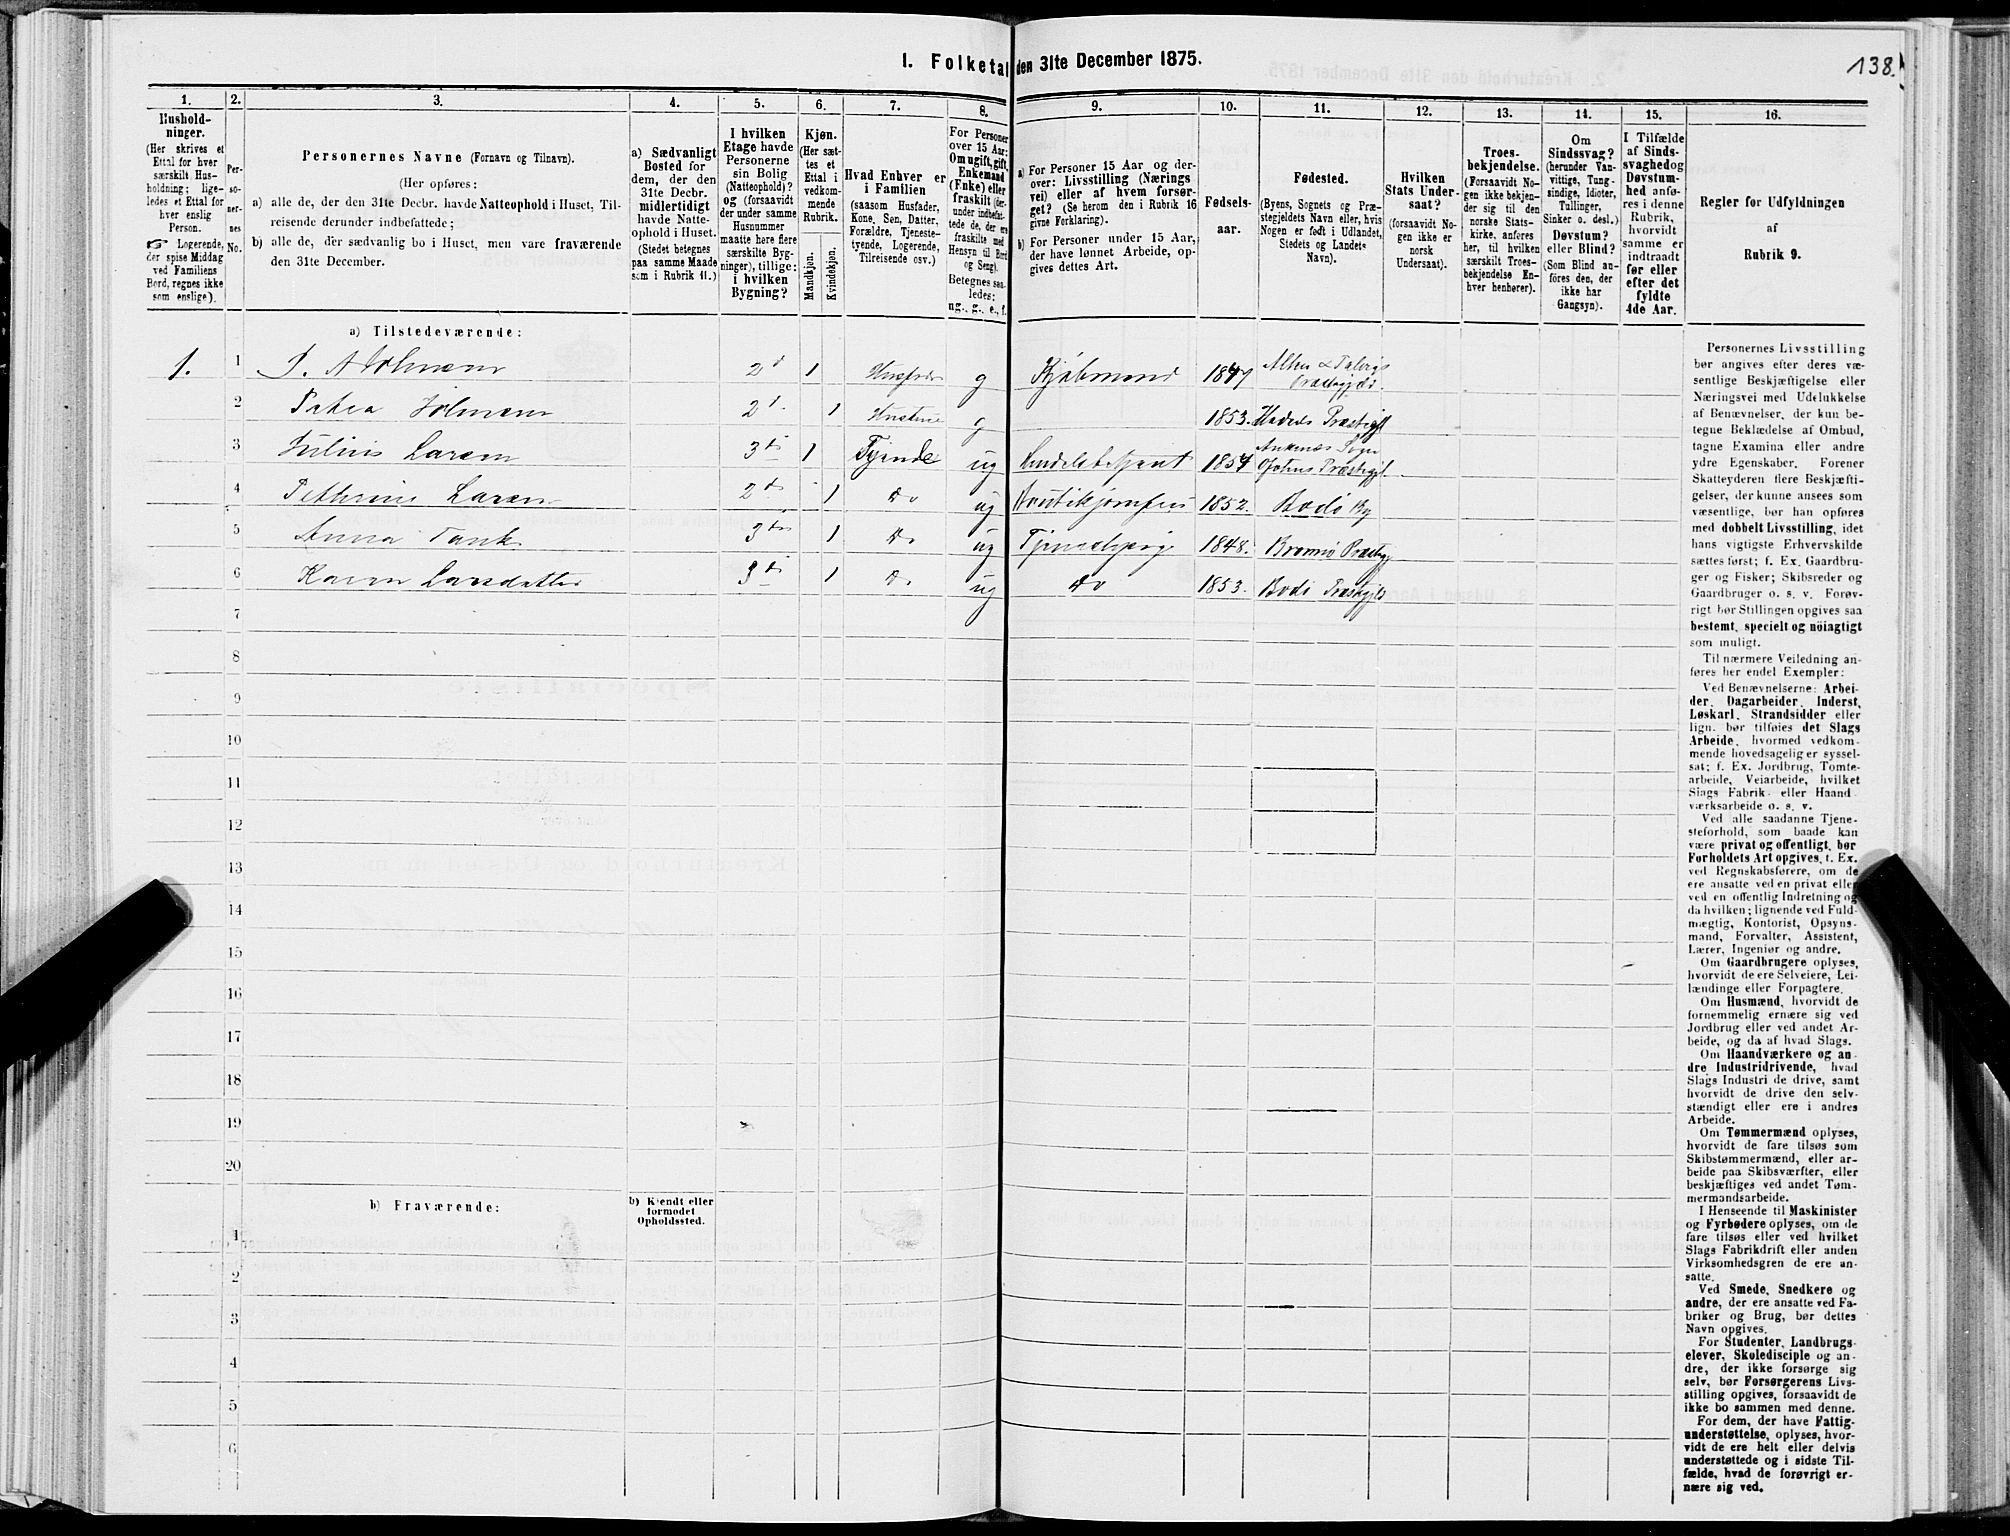 I. Folketal den 31te December 1875.
138.
1.
2.
3.
4.
5.
6.
7.
8.
9.
10.
11.
12.
13.
14.
15.
16.
Hushold-
ninger.
(Her skrives et
Ettal for hver
særskilt Hus-
holdning; lige-
ledes et Ettal for
hver enslig
Person.
☞ Logerende,
der spise Middag
ved Familiens
Bord, regnes ikke
som enslige).
Per-
so-
ner-
nes
No.
Personernes Navne (Fornavn og Tilnavn).
(Her opføres:
a) alle de, der den 31te Decbr. havde Natteophold i Huset, Til-
reisende derunder indbefattede;
b) alle de, der sædvanlig bo i Huset, men vare fraværende
den 31te December.
a) Sædvanligt
Bosted for
dem, der den
31te Decbr.
midlertidigt
havde Natte-
ophold i Huset.
(Stedet betegnes
paa samme Maade
som i Rubrik 11.)
I hvilken
Etage havde
Personerne
sin Bolig
(Natteophold)?
og (forsaavidt
der under samme
Husnummer
maatte høre flere
særskilte Byg-
ninger), tillige:
i hvilken
Bygning?
Kjøn.
(Her sæt-
tes et
Ettal i
vedkom-
mende
Rubrik.
Mandkjøn.
Kvindekjøn.
Hvad Enhver er
i Familien
(saasom Husfader,
Kone, Søn, Datter,
Forældre, Tjeneste-
tyende, Logerende,
Tilreisende osv.)
For Personer
over 15 Aar:
Om ugift, gift,
Enkemand
(Enke) eller
fraskilt (der-
under indbefat-
tede de, der ere
fraskilte med
Hensyn til Bord
og Seng).
Betegnes saa-
ledes:
ug., g., e., f.
a) For Personer 15 Aar og der-
over: Livsstilling (Nærings
vei) eller af hvem forsør-
get? (Se herom den i Rubrik 16
givne Forklaring).
b) For Personer under 15 Aar,
der have lønnet Arbeide, op-
gives dettes Art.
Fødsels-
aar.
Fødested.
(Byens, Sognets og Præ-
stegjeldets Navn eller, hvis
Nogen er født i Udlandet,
Stedets og Landets
Navn).
Hvilken
Stats Under-
saat?
(forsaavidt No-
gen ikke er
norsk
Undersaat).
Troes-
bekjendelse.
(Forsaavidt No-
gen ikke bekjen-
der sig til den
norske Stats-
kirke, anføres
her, til hvilken
særskilt Troes-
bekjendelse En-
hver henhører).
Om
Sindssvag?
(herunder Van-
vittige, Tung-
sindige, Idioter,
Tullinger,
Sinker o. desl.)
Døvstum?
eller Blind?
(Som Blind an-
føres den, der
ikke har
Gangsyn).
I Tilfælde
af Sinds-
svaghed og
Døvstum-
hed anfø-
res i denne
Rubrik,
hvorvidt
samme er
indtraadt
før eller
efter det
fyldte
4de Aar.
Regler for Udfyldningen
af
Rubrik 9.
a) Tilstedeværende:
1. 1 Holmsen 2d 1 Husfader g Kjøbmand 1847
2 Petra Holmsen 2d 1 Hustru g 1853. Præstegjl
3 Julius Larsen 3de 1 Tyende ug Handelsbetjent 1854 Ankenes Sogn Ofotens Præstegjl.
4 Pethrine Larsen 2de 1 do ug 1852. Bodø By
5 Anna Tank 3de 1 do ug Tjenestepige 1848. Brønnø Præstegj
6 Karen Larsdatter 3de 1 do ug do 1853. Bodø Præstegjld
7
8
9
10
11
12
13
14
15
16
17
18
19
20
b) Fraværende:
b) Kjendt eller
formodet
Opholdssted.
1
2
3
4
5
6
Personernes Livsstilling
bør angives efter deres væ-
sentlige Beskjæftigelse eller
Næringsvei med Udelukkelse
af Benævnelser, der kun be-
tegne Beklædelse af Ombud,
tagne Examina eller andre
ydre Egenskaber. Forener
Skatteyderen flere Beskjæfti-
gelser, der kunne ansees som
væsentlige, bør han opføres
med dobbelt Livsstilling, idet
hans vigtigste Erhvervskilde
sættes først; f. Ex. Gaardbru-
ger og Fisker; Skibsreder og
Gaardbruger o. s. v. Forøv-
rigt bør Stillingen opgives saa
bestemt, specielt og nøiagtigt
som muligt.
Til nærmere Veiledning an-
føres her endel Exempler:
Ved Benævnelserne: Arbei-
der, Dagarbeider, Inderst,
Løskarl, Strandsidder eller
lign. bør tilføies det Slags
Arbeide, hvormed vedkom-
mende hovedsagelig er syssel-
sat; f. Ex. Jordbrug, Tomte-
arbeide, Veiarbeide, hvilket
Slags Fabrik- eller Haand-
værksarbeide o. s. v.
Ved alle saadanne Tjene-
steforhold, som baade kan
være privat og offentligt, bør
Forholdets Art opgives, f. Ex.
ved Regnskabsførere, om de
ere ansatte ved en privat eller
ved en offentlig Indretning og
da hvilken; lignende ved Fuld-
mægtig, Kontorist, Opsyns-
mand, Forvalter, Assistent,
Lærer, Ingeniør og andre.
Om Gaardbrugere oplyses,
hvorvidt de ere Selveiere, Lei-
lændinge eller Forpagtere.
Om Husmænd, hvorvidt de
fornemmelig ernære sig ved
Jordbrug eller ved andet Ar-
beide, og da af hvad Slags.
Om Haandværkere og an-
dre Industridrivende, hvad
Slags Industri de drive, samt
hvorvidt de drive den selv-
stændigt eller ere i andres
Arbeide.
Om Tømmermænd oplyses,
hvorvidt de fare tilsøs som
Skibstømmermænd, eller ar-
beide paa Skibsværfter, eller
beskjæftiges ved andet Tøm-
mermandsarbeide.
I Henseende til Maskinister
og Fyrbødere oplyses, om de
fare tilsøs eller ved hvilket
Slags Fabrikdrift eller anden
Virksomhedsgren de ere an-
satte.
Ved Smede, Snedkere og
andre, der ere ansatte ved Fa-
briker og Brug, bør dettes
Navn opgives.
For Studenter, Landbrugs-
elever, Skoledisciple og an-
dre, der ikke forsørge sig
selv, bør Forsørgerens Livs-
stilling opgives, forsaavidt de
ikke bo sammen med denne.
For dem, der have Fattig-
understøttelse, oplyses, hvor-
vidt de ere helt eller delvis
understøttede og i sidste Til-
fælde, hvad de forøvrigt er-
nære sig ved.